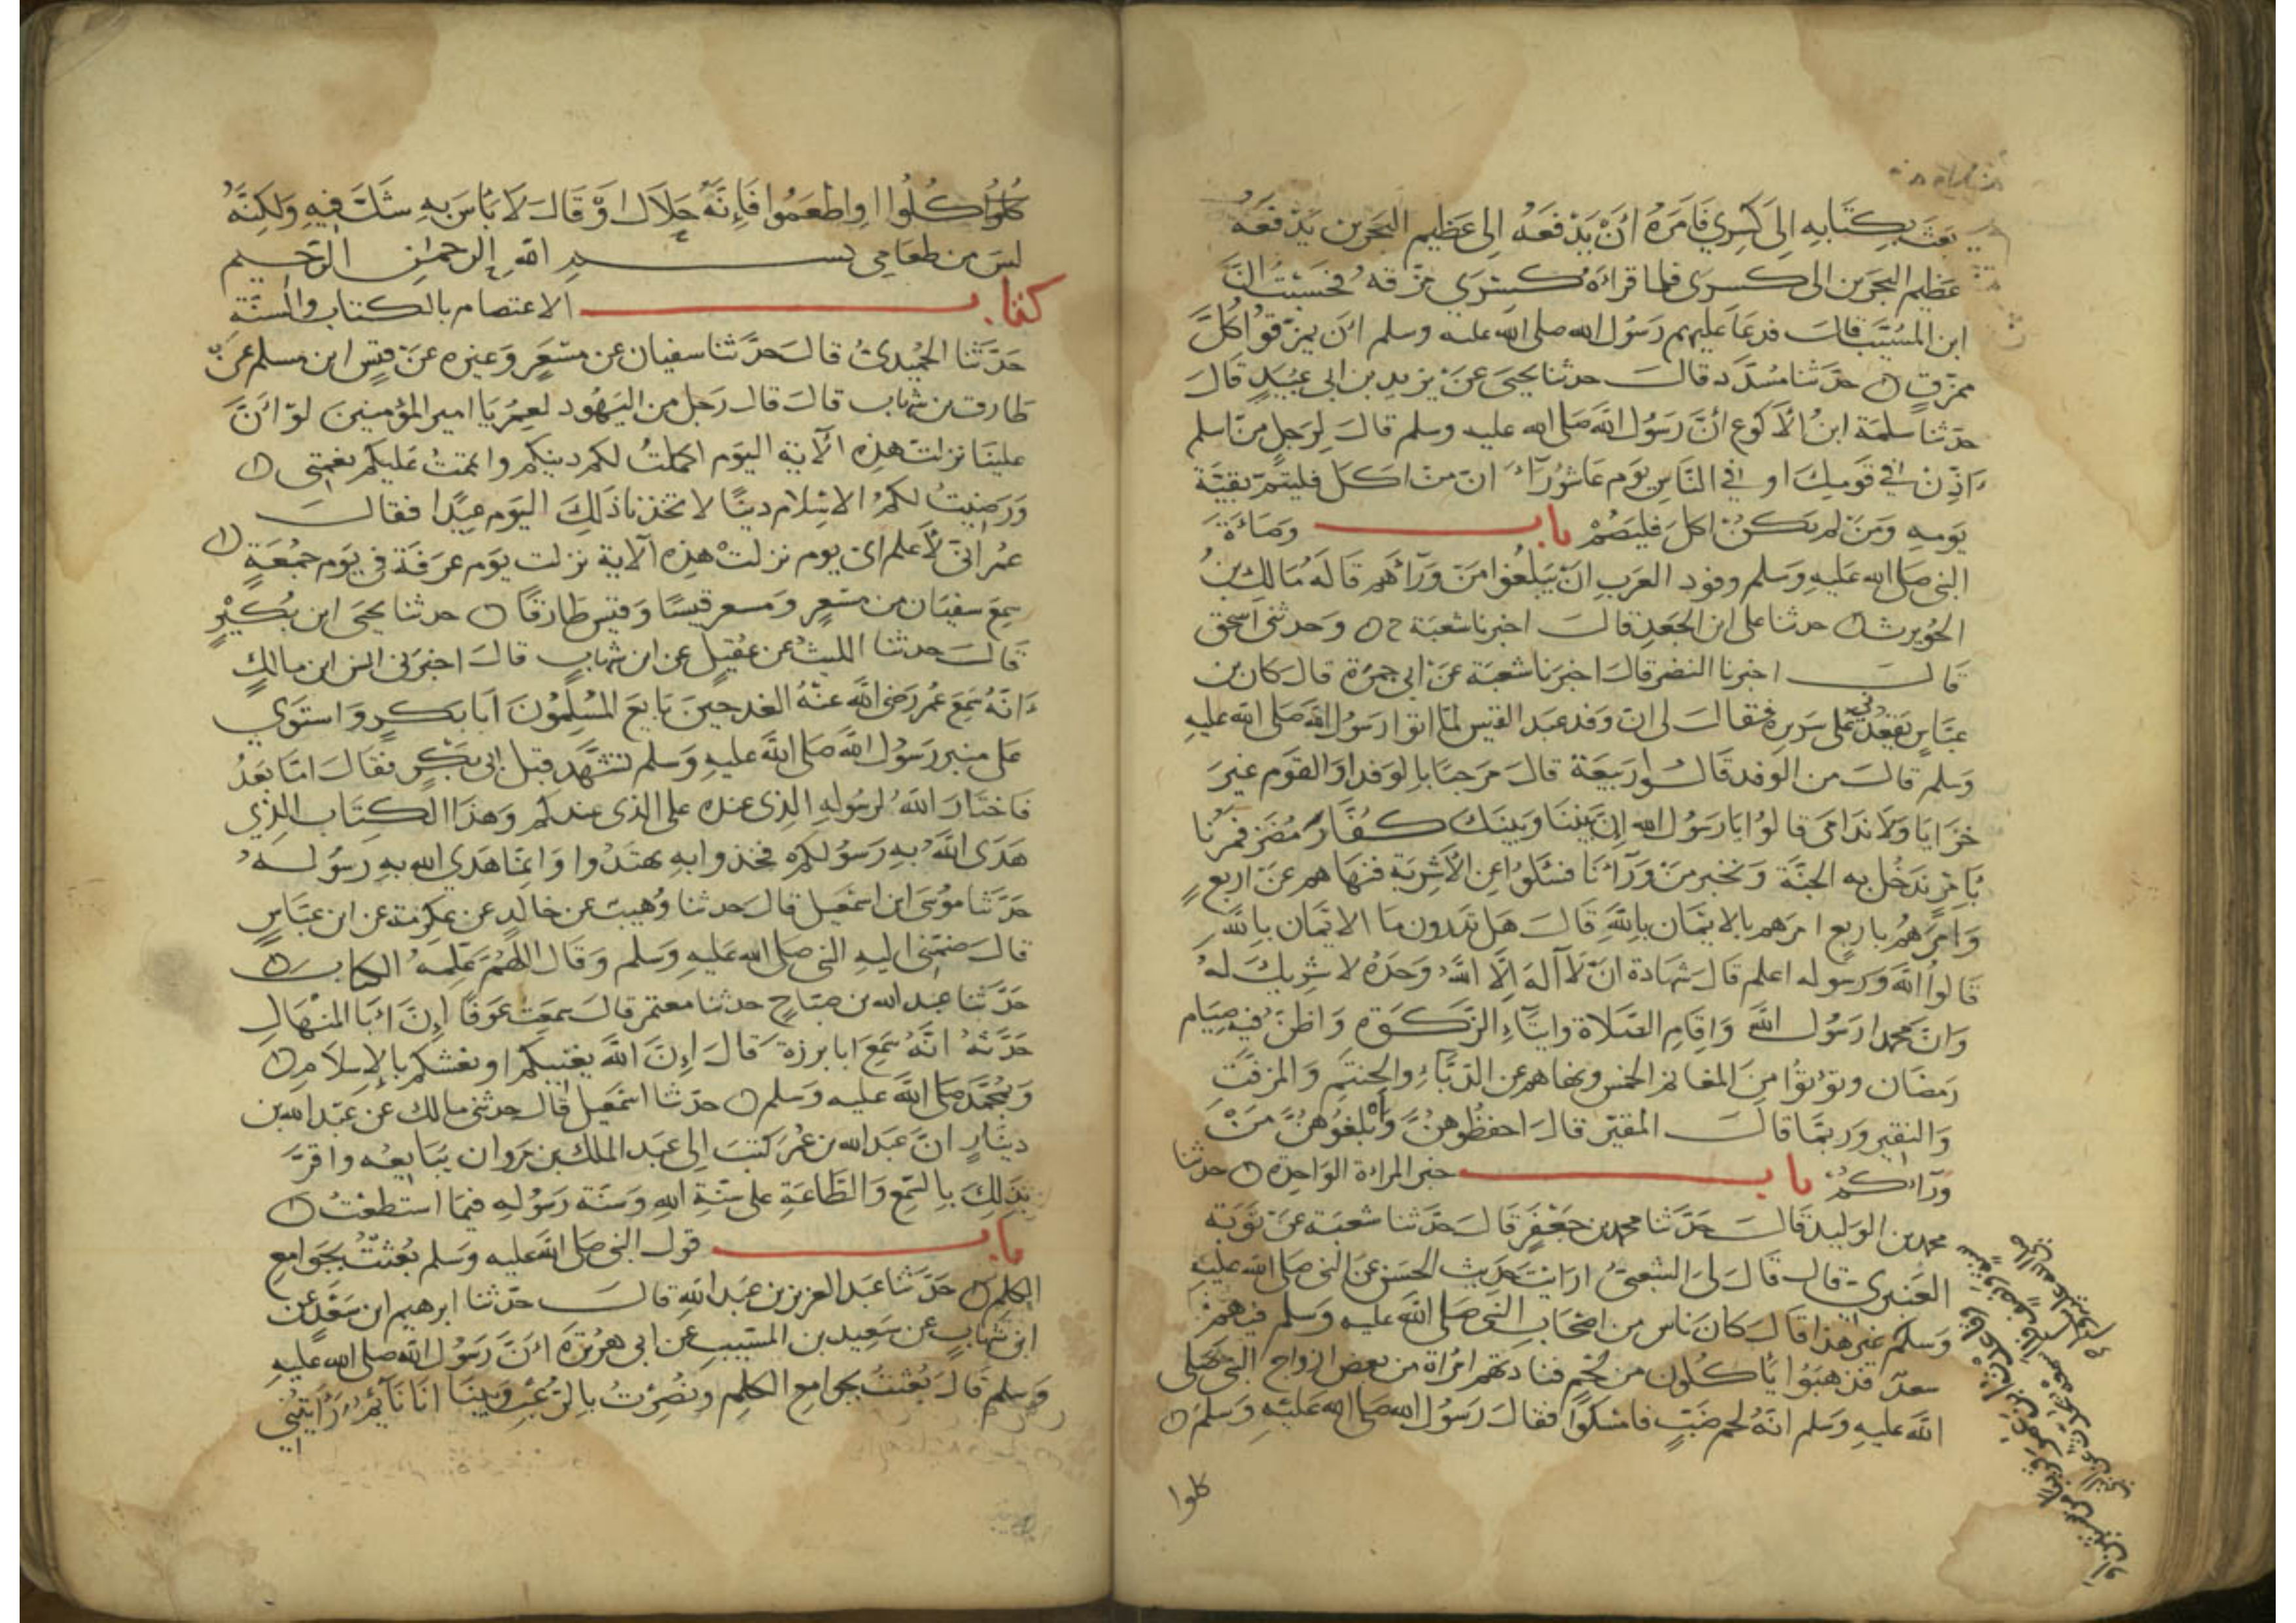 بعث بكتابه الى كسرى فامره ان يدفعه الى عظيم البحرين يدفعه
عظيم البحرين الى كسرى فلما قراه كسرى مزقه فحسبت ان
ابن المسيب قال فدعا عليهم رسول الله صلى الله عليه وسلم ان يمزقوا كل
ممزق حدثنا مسدد قال حدثنا يحيى عن يزيد بن ابى عبيد قال
حدثنا سلمة ابن الاكوع ان رسول الله صلى الله عليه وسلم قال لرجل من اسلم
اذن فى قومك او فى الناس يوم عاشوراء ان من اكل فليتم بقية
يومه ومن لم يكن اكل فليصم باب وصاة
النبى صلى الله عليه وسلم وفود العرب ان يبلغوا من ورآهم قاله مالك بن
الحويرث حدثنا على ابن الجعد قال اخبرنا شعبة ح وحدثنى اسحق
قال اخبرنا النضر قال اخبرنا شعبة عن ابى جمرة قال كان بن
عباس يقعدنى على سريره فقال لى ان وفد عبد القيس لما اتوا رسول الله صلى الله عليه
وسلم قال من الوفد قالوا ربيعة قال مرحبا بالوفد او القوم غير
خزايا ولا ندامى قالوا يا رسول الله ان بيننا وبينك كفار مضر فمرنا
بامر ندخل به الجنة ونخبر من ورآءنا فسئلوا عن الاشربة فنهاهم عن اربع
وامرهم باربع امرهم بالايمان بالله قال هل تدرون ما الايمان بالله
قالوا الله ورسوله اعلم قال شهادة ان لا آله الا الله وحده لا شريك له
وان محمدا رسول الله واقام الصلاة وايتآء الزكوة واظن فيه صيام
رمضان وتؤتوا من المغانم الخمس ونهاهم عن الدبآء والحنتم والمزفت
والنقير وربما قال المقير قال احفظوهن وابلغوهن من
ورآءكم باب خبر المراة الواحدة حدثنا
محمد بن الوليد قال حدثنا محمد بن جعفر قال حدثنا شعبة عن توبة
العنبرى قال قال لى الشعبى ارايت حديث الحسن عن النبى صلى الله عليه
وسلم غير هذا قال كان ناس من اصحاب النبى صلى الله عليه وسلم فيهم
سعد فذهبوا ياكلون من لحم فنادتهم امراة من بعض ازواج النبى صلى
الله عليه وسلم انه لحم ضب فامسكوا فقال رسول الله صلى الله عليه وسلم
كلوا
كلوا كلوا او اطعموا فانه حلال او قال لا باس به شك فيه ولكنه
ليس من طعامى بسم الله الرحمن الرحيم
كتاب الاعتصام بالكتاب والسنة
حدثنا الحميدى قال حدثنا سفيان عن مسعر وغيره عن قيس ابن مسلم عن
طارق بن شهاب قال قال رجل من اليهود لعمر يا امير المؤمنين لو ان
علينا نزلت هذه الآية اليوم اكملت لكم دينكم واتممت عليكم نعمتى
ورضيت لكم الاسلام دينا لاتخذنا ذلك اليوم عيدا فقال
عمر انى لاعلم اى يوم نزلت هذه الآية نزلت يوم عرفة فى يوم جمعة
سمع سفيان من مسعر ومسعر قيسا وقيس طارقا حدثنا يحيى ابن بكير
قال حدثنا الليث عن عقيل عن ابن شهاب قال اخبرنى انس ابن مالك
انه سمع عمر رضى الله عنه الغد حين بايع المسلمون ابا بكر واستوى
على منبر رسول الله صلى الله عليه وسلم تشهد قبل ابى بكر فقال اما بعد
فاختار الله لرسوله الذى عنده على الذى عندكم وهذا الكتاب الذى
هدى الله به رسولكم فخذوا به تهتدوا وانما هدى الله به رسوله
حدثنا موسى ابن اسمعيل قال حدثنا وهيب عن خالد عن عكرمة عن ابن عباس
قال ضمنى اليه النبى صلى الله عليه وسلم وقال اللهم علمه الكتاب
حدثنا عبد الله بن صباح حدثنا معتمر قال سمعت عوفا ان ابا المنهال
حدثه انه سمع ابا برزة قال ان الله يغنيكم او نغشكم بالاسلام
وبمحمد صلى الله عليه وسلم حدثنا اسمعيل قال حدثنى مالك عن عبد الله بن
دينار ان عبد الله بن عمر كتب الى عبد الملك بن مروان يبايعه واقر
بذلك بالسمع والطاعة على سنة الله وسنة رسوله فيما استطعت
باب قول النبى صلى الله عليه وسلم بعثت بجوامع
الكلم حدثنا عبد العزيز بن عبد الله قال حدثنا ابرهيم ابن سعد عن
ابن شهاب عن سعيد بن المسيب عن ابى هريرة ان رسول الله صلى الله عليه
وسلم قال بعثت بجوامع الكلم ونصرت بالرعب وبينا انا نآئم رايتنى